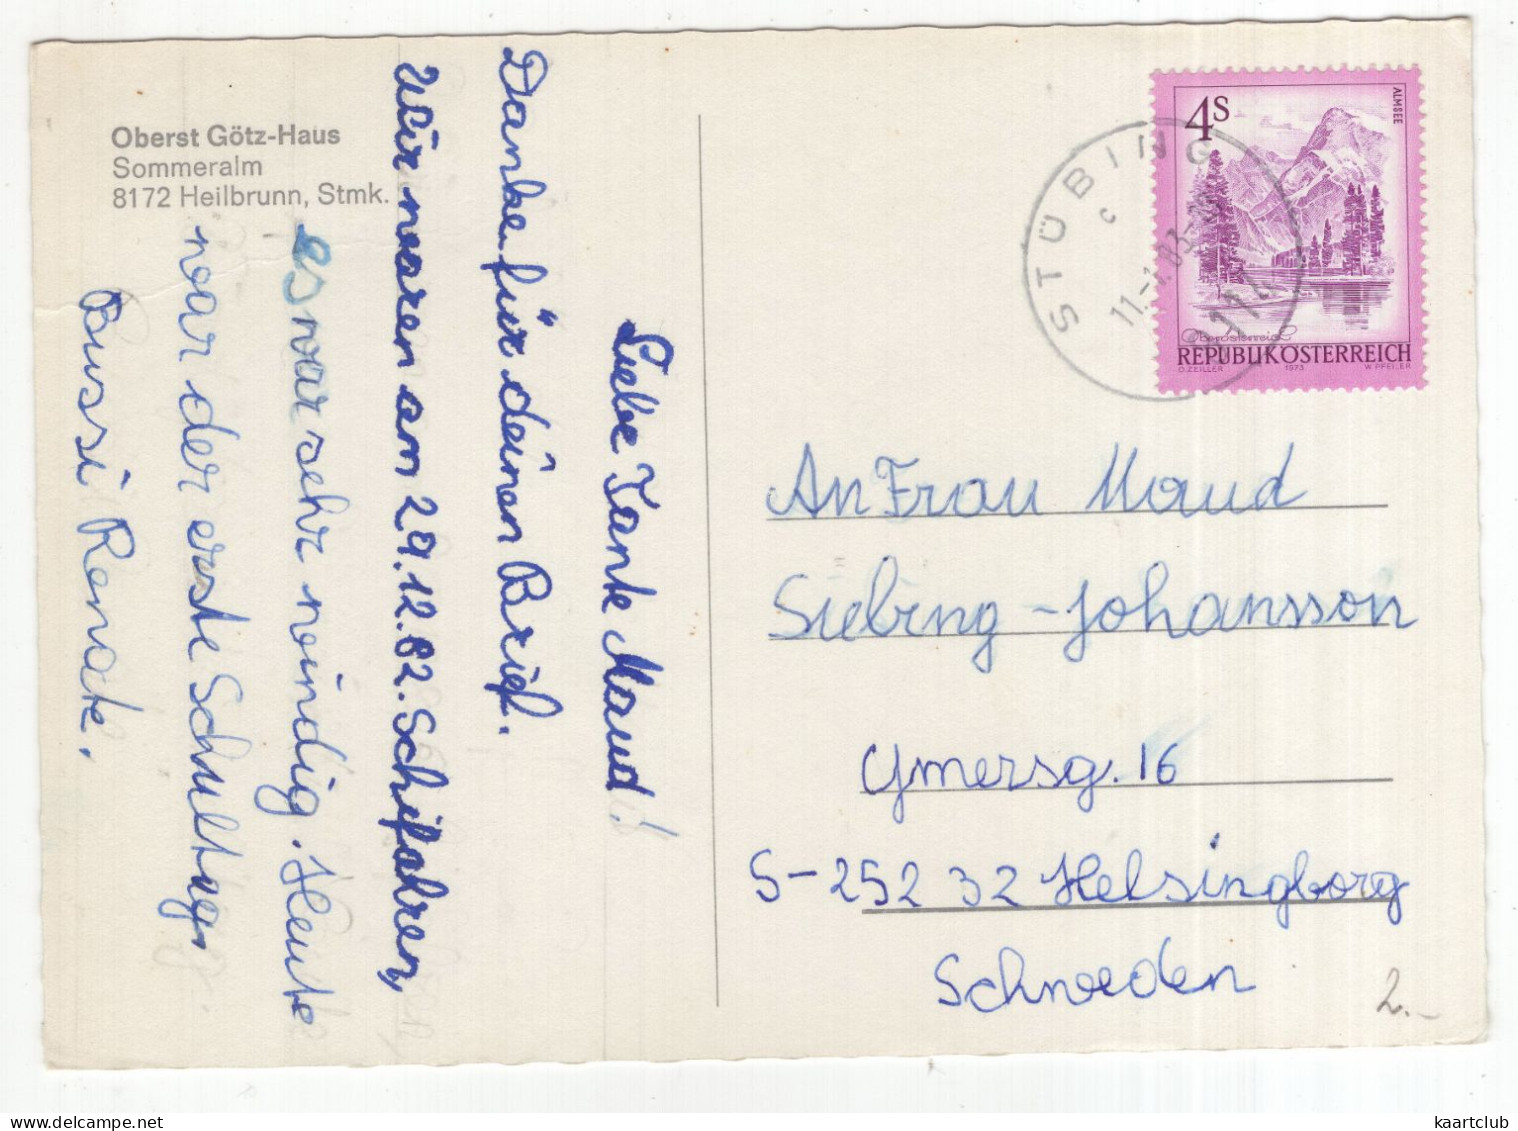 Oberst Götz-Haus
Sommeralm
8172 Heilbrunn, Stmk.
Liebe Tante Maud!
Danke für deinen Brief.
Wir waren am 29.12.82. Schifahren,
es war sehr windig. Heute
war der erste Schultag.
Bussi Renate.
STÜBING
c
11.-1.83-
4S
ALMSEE
Oberösterreich
REPUBLIK ÖSTERREICH
O. ZEILLER 1973 W. PFEILER
An Frau Maud
Siebing-Johansson
Ymersg. 16
S-252 32 Helsingborg
Schweden
2.-
kaartclub